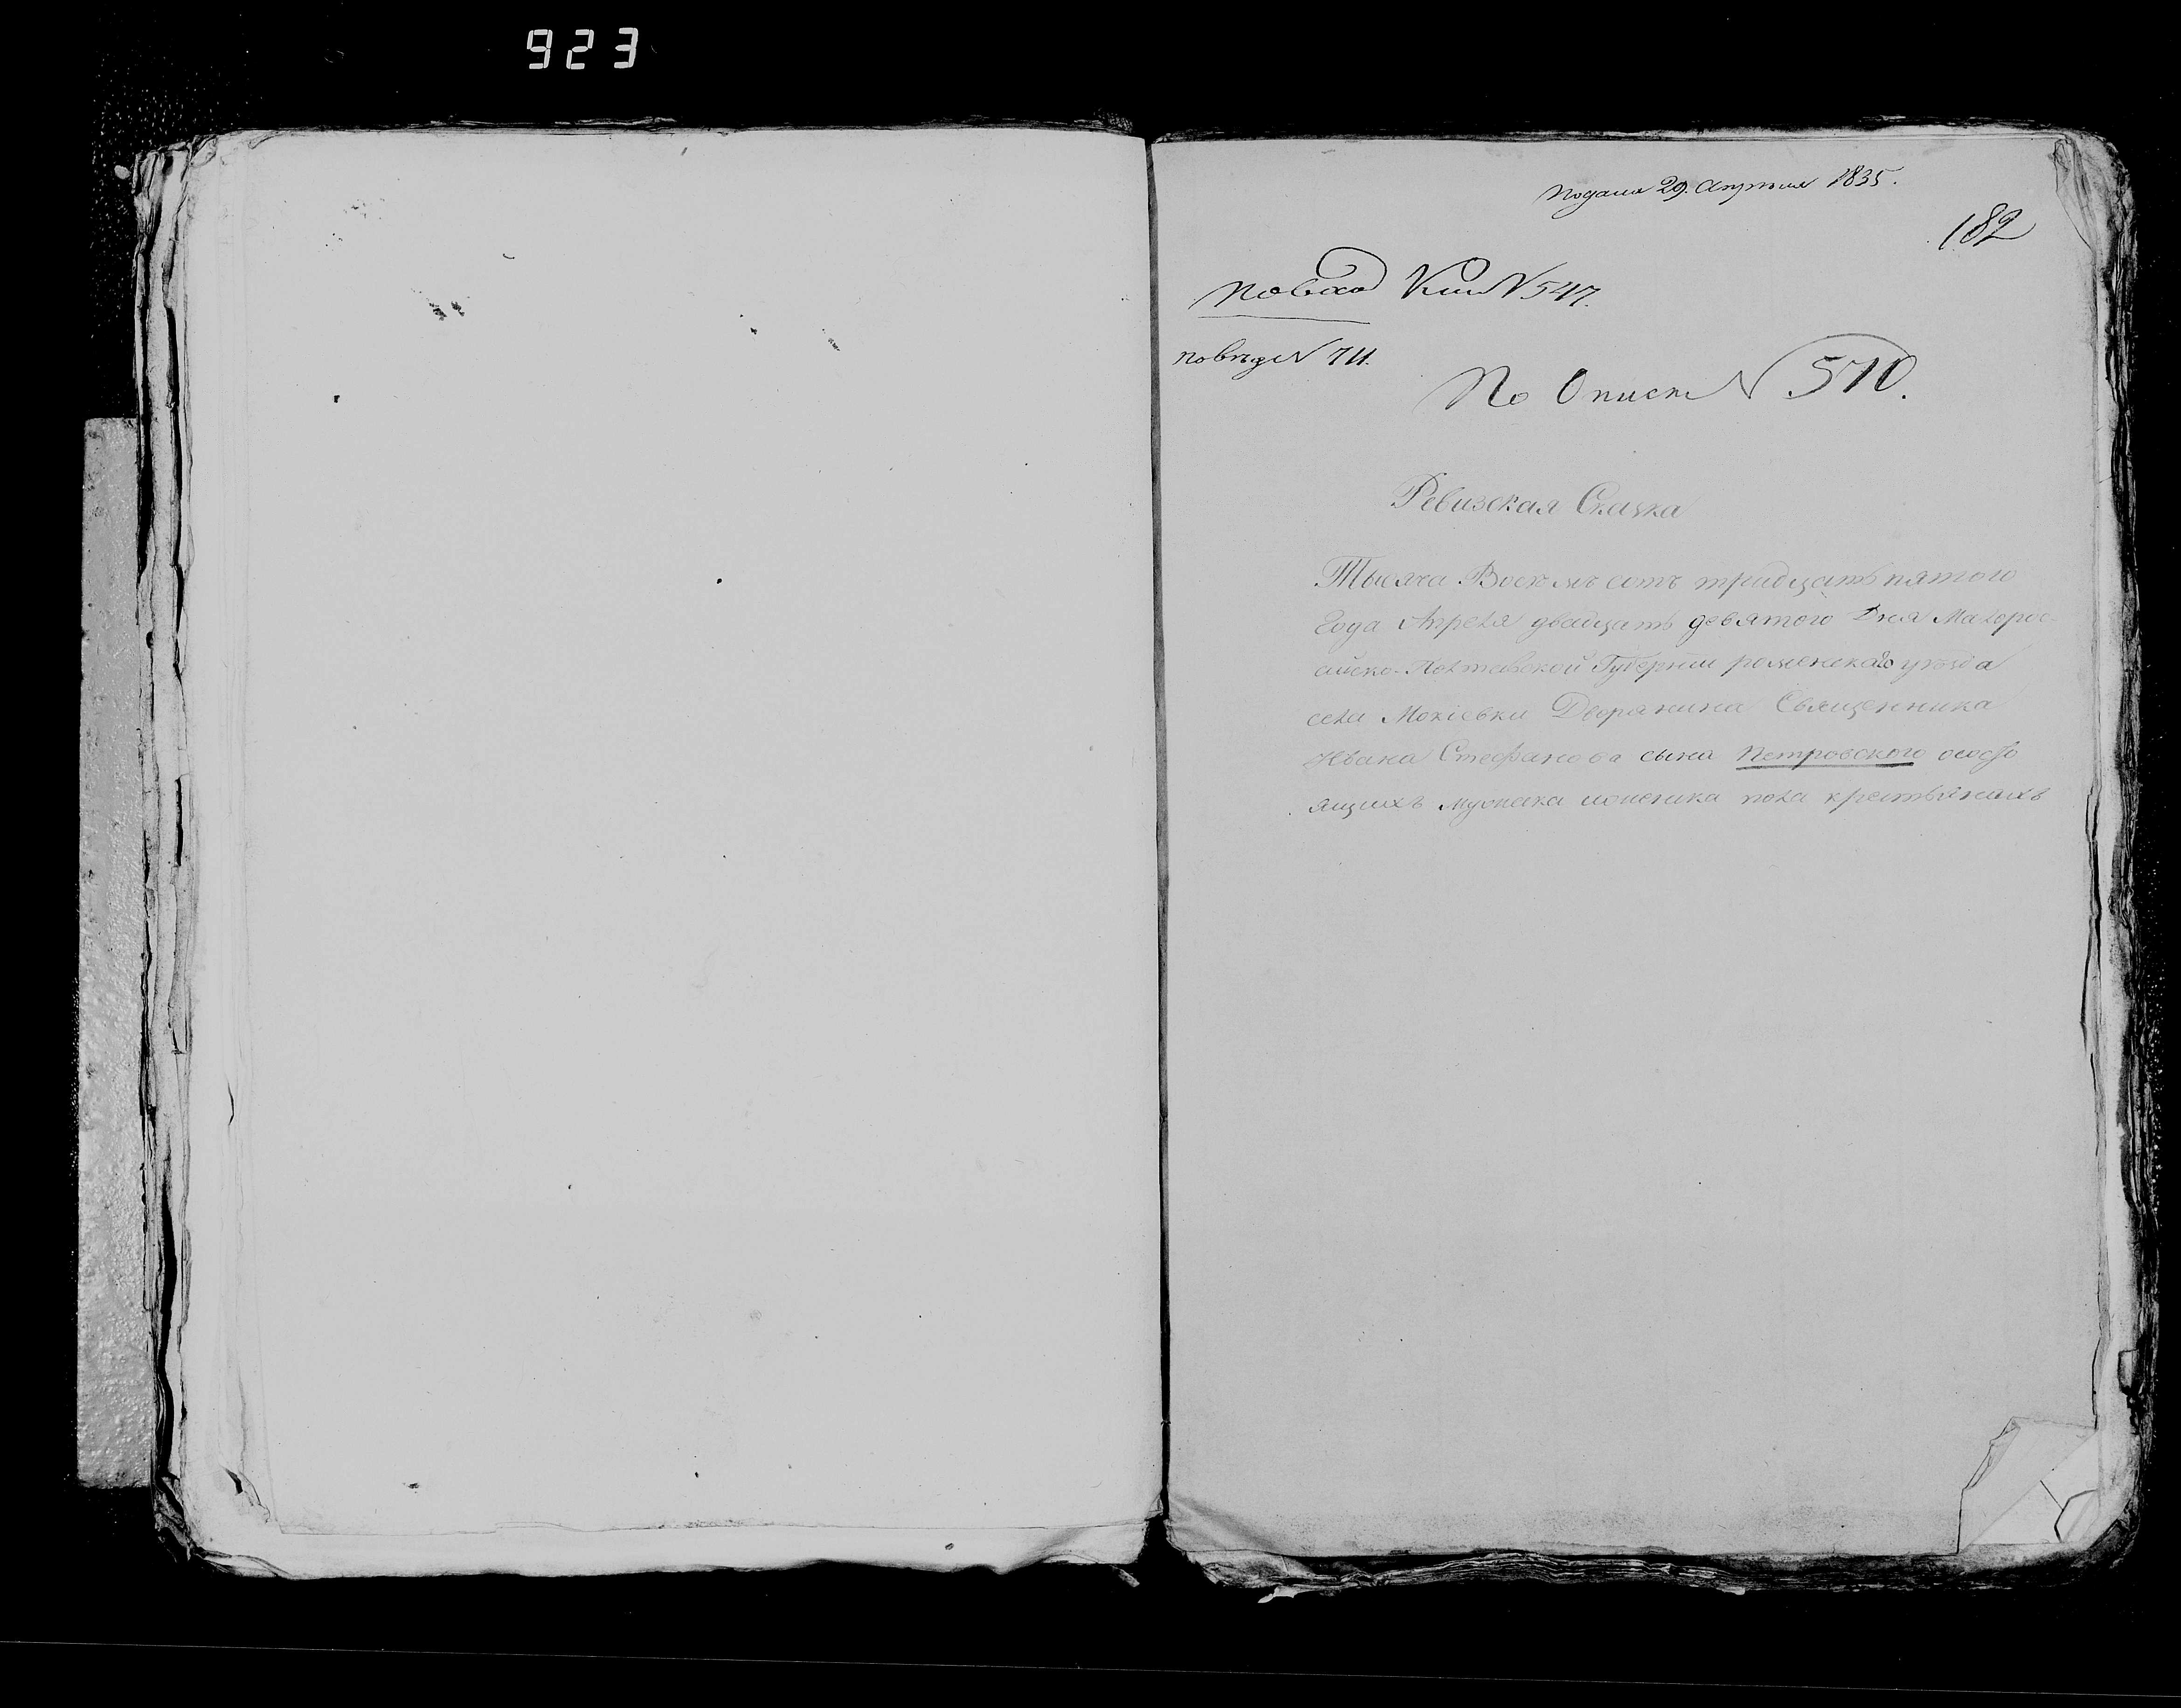 923
Подана 29. Апреля 1835.
182
по вход Кни N 547.
по вѣд N 711.
По Описи N 570.
Ревизская Сказка
Тысяча Восемъ сотъ тридцать пятого
Года Апреля двадцать девятого Дня Малорос-
сиско-Полтавской Губернии роменскаго уезда
села Мокіевки Дворянина Священника
Ивана Стефанова сына Петровского о состо
ящихъ мужеска иженска пола крестьянахъ